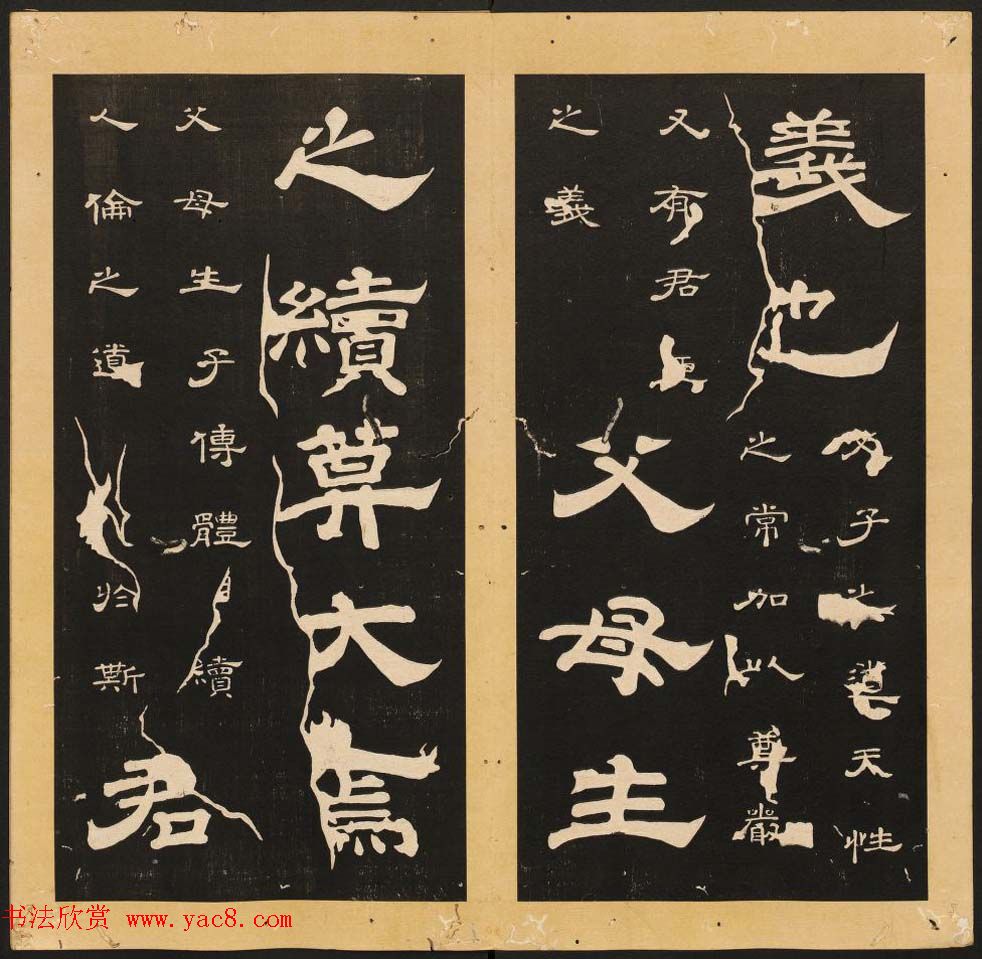 義也
父子之道天性
之常加以尊嚴
又有君臣
之義
父母生
之續莫大焉
父母生子傳體續
人倫之道於斯
君
书法欣赏 www.yac8.com